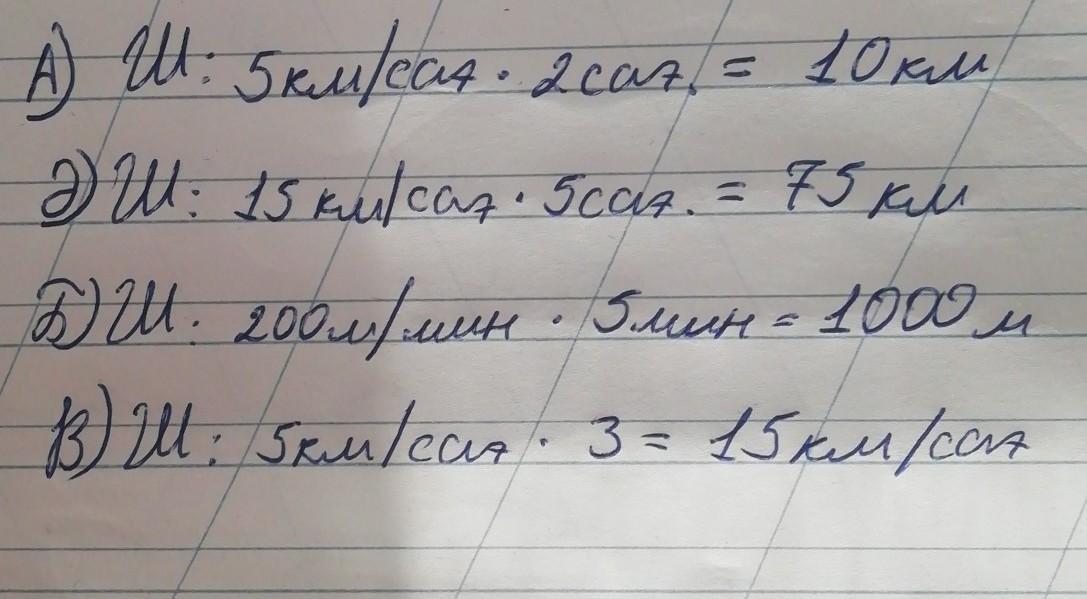 А) Ш: 5км/сағ · 2сағ. = 10км
Ә) Ш: 15км/сағ · 5сағ. = 75км
Б) Ш: 200м/мин · 5мин = 1000м
В) Ш: 5км/сағ · 3 = 15км/сағ